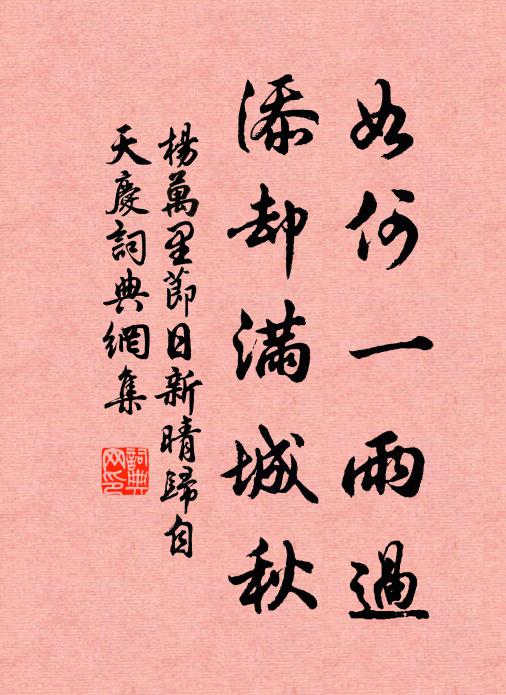 如何一雨過
添却滿城秋
楊萬里節日新晴歸自
天慶詞典網集
詞典
网印